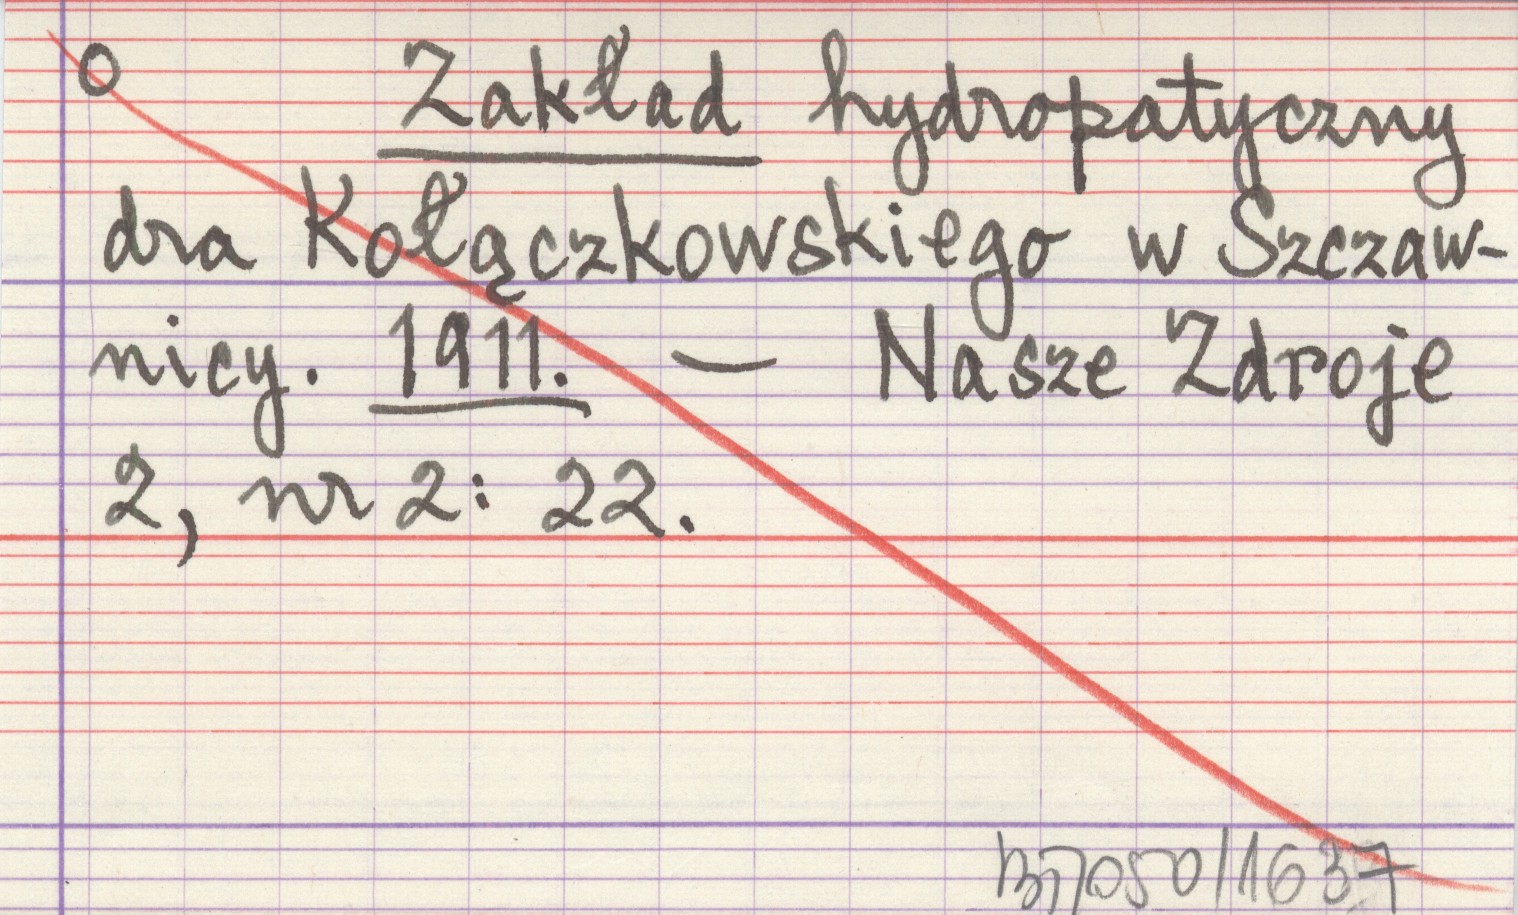 O Zakład hydropatyczny
dra Kołączkowskiego w Szczaw-
nicy. 1911. — Nasze Zdroje
2, nr 2: 22.